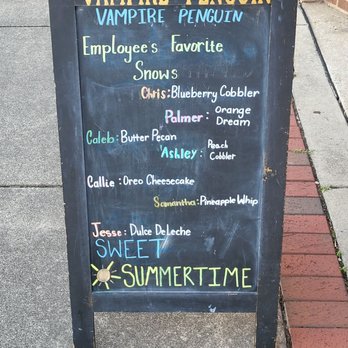 VAMPIRE PENGUIN
VAMPIRE PENGUIN
Employee's Favorite
Snows
Chris: Blueberry Cobbler
Palmer: Orange
Dream
Caleb: Butter Pecan
Ashley: Peach
Cobbler
Callie: Oreo Cheesecake
Samantha: Pineapple Whip
Jesse: Dulce DeLeche
SWEET
SUMMERTIME